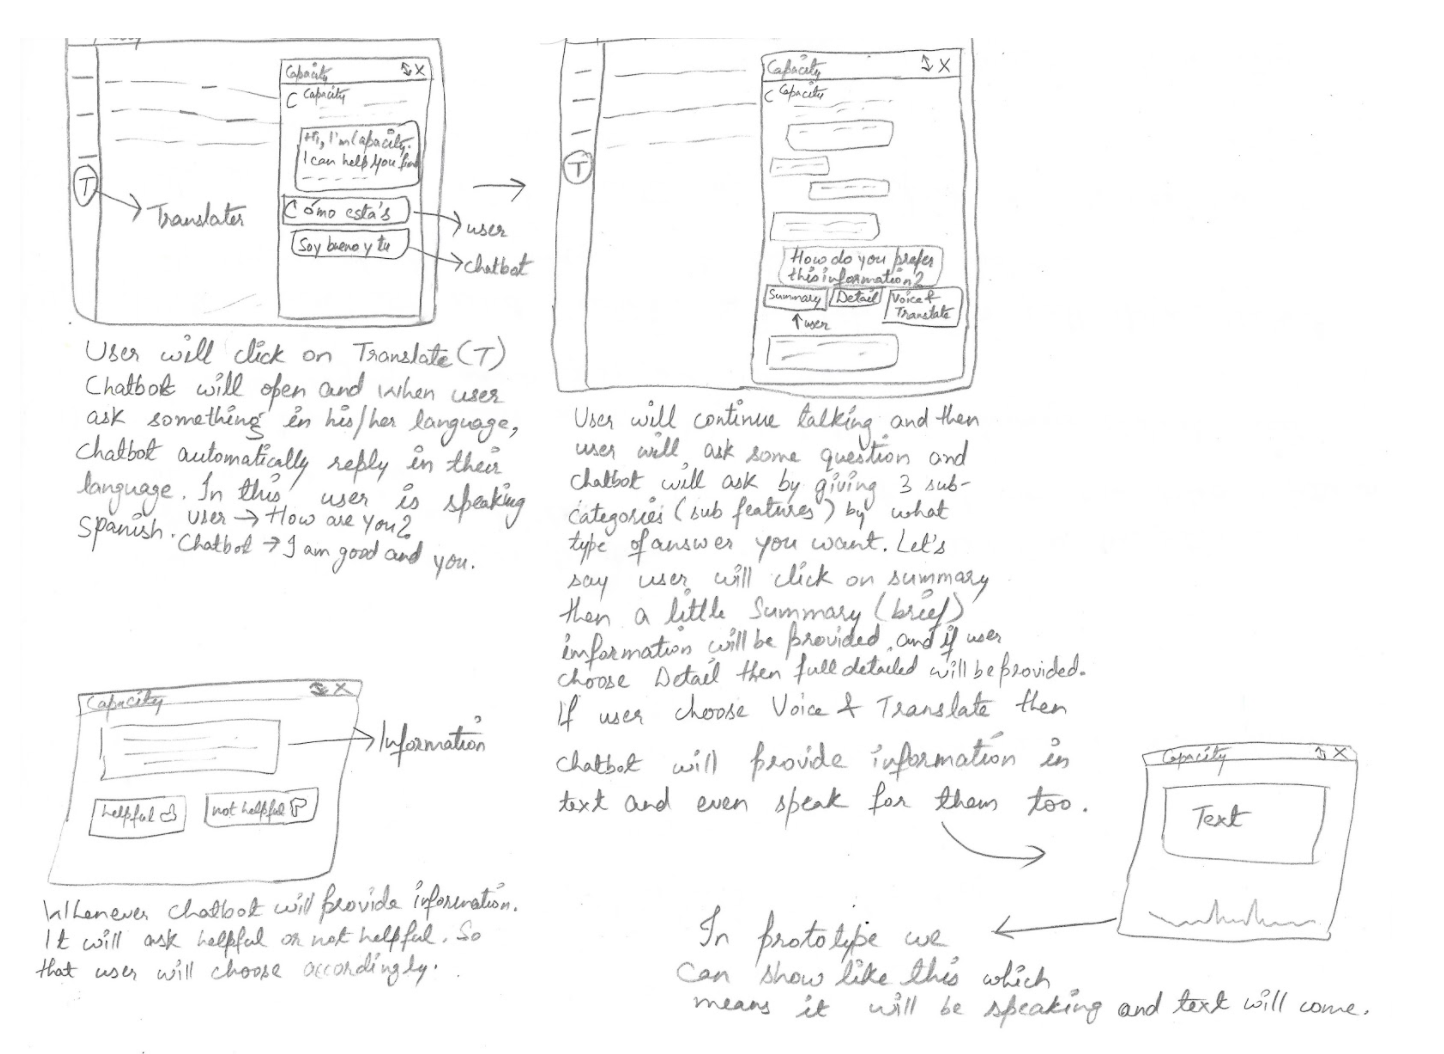 Capacity X
C Capacity
Hi, I'm Capacity.
I can help you find
T
Translater
Cómo esta's
user
Soy bueno y tu
chatbot
User will click on Translate (T)
Chatbot will open and when user
ask something in his/her language,
Chatbot automatically reply in their
language. In this user is speaking
Spanish. User → How are you?
Chatbot → I am good and you.
Capacity X
C Capacity
T
How do you prefer
this information?
Summary Detail Voice &
Translate
↑ user
User will continue talking and then
user will ask some question and
chatbot will ask by giving 3 sub-
categories (sub features) by what
type of answer you want. Let's
say user will click on summary
then a little Summary (brief)
information will be provided and if user
choose Detail then full detailed will be provided.
If user choose Voice & Translate then
chatbot will provide information in
text and even speak for them too.
Capacity X
Information
helpful not helpful
Whenever chatbot will provide information.
It will ask helpful or not helpful. So
that user will choose accordingly.
Capacity X
Text
In prototype we
can show like this which
means it will be speaking and text will come.